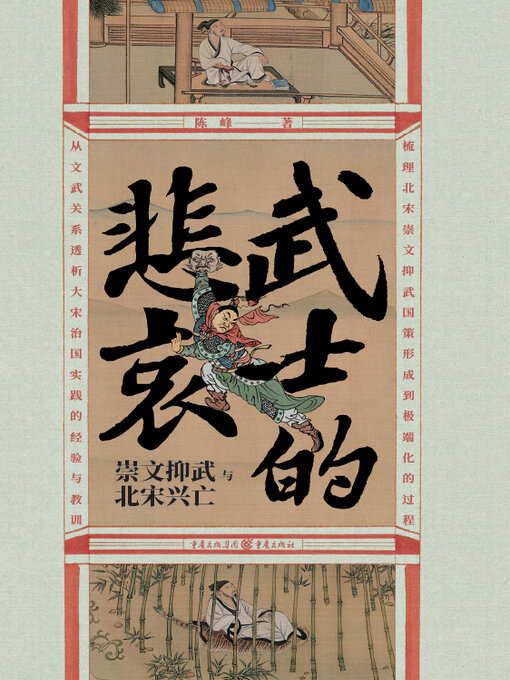 陈峰 著
武士的
悲哀
崇文抑武与
北宋兴亡
梳理北宋崇文抑武国策形成到极端化的过程
从文武关系透析大宋治国实践的经验与教训
重庆出版集团 重庆出版社